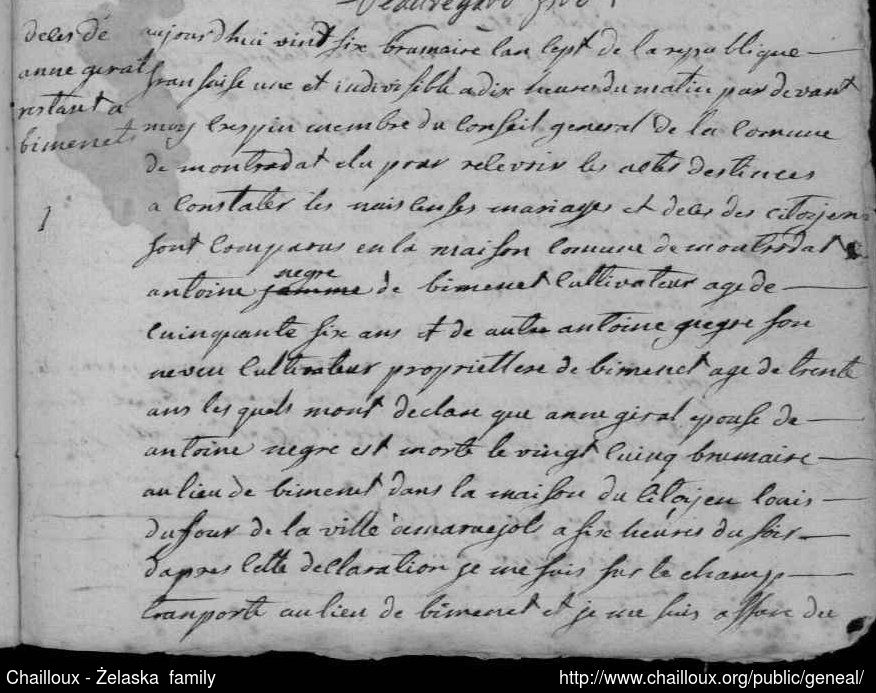 Beauregard
deces de
anne giral
restant a
bimenet
1
aujourdhui vint six brumaire lan sept de la republique
fransaise une et indivisible a dix heures du matin par devant
moy Crespin membre du Conseil general de la Comune
de montrodat elu pour relevoir les actes destinees
a Constater les naissenses mariages et deces des citoijens
sont Comparus en la maison Comune de montrodat
antoine negre de bimenet Cultivateur age de
Cuinquante six ans et de autre antoine negre son
neveu Cultivateur propriettere de bimenet age de trente
ans les quels mont declare que anne giral epouse de
antoine negre est morte le vingt Cuinq brumaire
au lieu de bimenet dans la maison du Citoijen louis
dufour de la ville amaruejols a six heures du soir
dapres Cette declaration je me suis sur le champ
tranporte au lieu de bimenet et je me suis assure du
Chailloux - Żelaska family
http://www.chailloux.org/public/geneal/